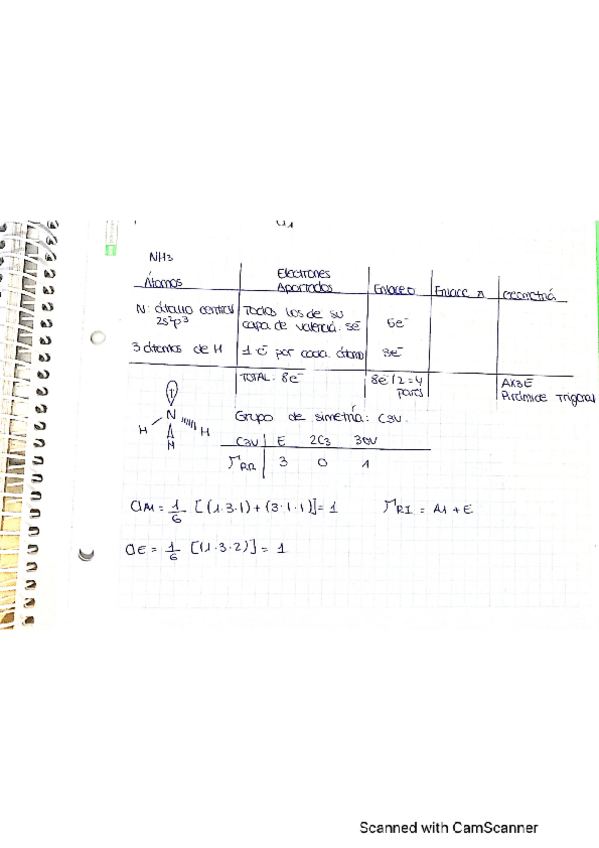 NH3
Átomos Electrones Aportados Enlace σ Enlace π Geometría
N: átomo central Todos los de su 5e⁻
2s²p³ capa de valencia. 5e
3 átomos de H 1 e⁻ por cada átomo 3e⁻
TOTAL: 8e⁻ 8e⁻/2=4 pares AX3E Pirámide Trigonal
N
H H
H
Grupo de simetría: C3v.
C3v E 2C3 3σv
ΓRR 3 0 1
aA1 = 1/6 [(1·3·1)+(3·1·1)]= 1 ΓRI = A1 + E
aE = 1/6 [(1·3·2)]= 1
Scanned with CamScanner